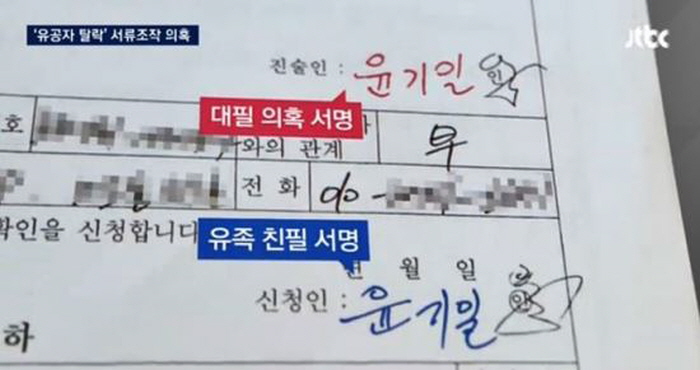 '유공자 탈락' 서류조작 의혹
jtbc
진술인 : 윤기일 인
대필 의혹 서명
호
와의 관계 부
전 화 010-
확인을 신청합니다
유족 친필 서명
년 월 일
신청인 : 윤기일 인
하